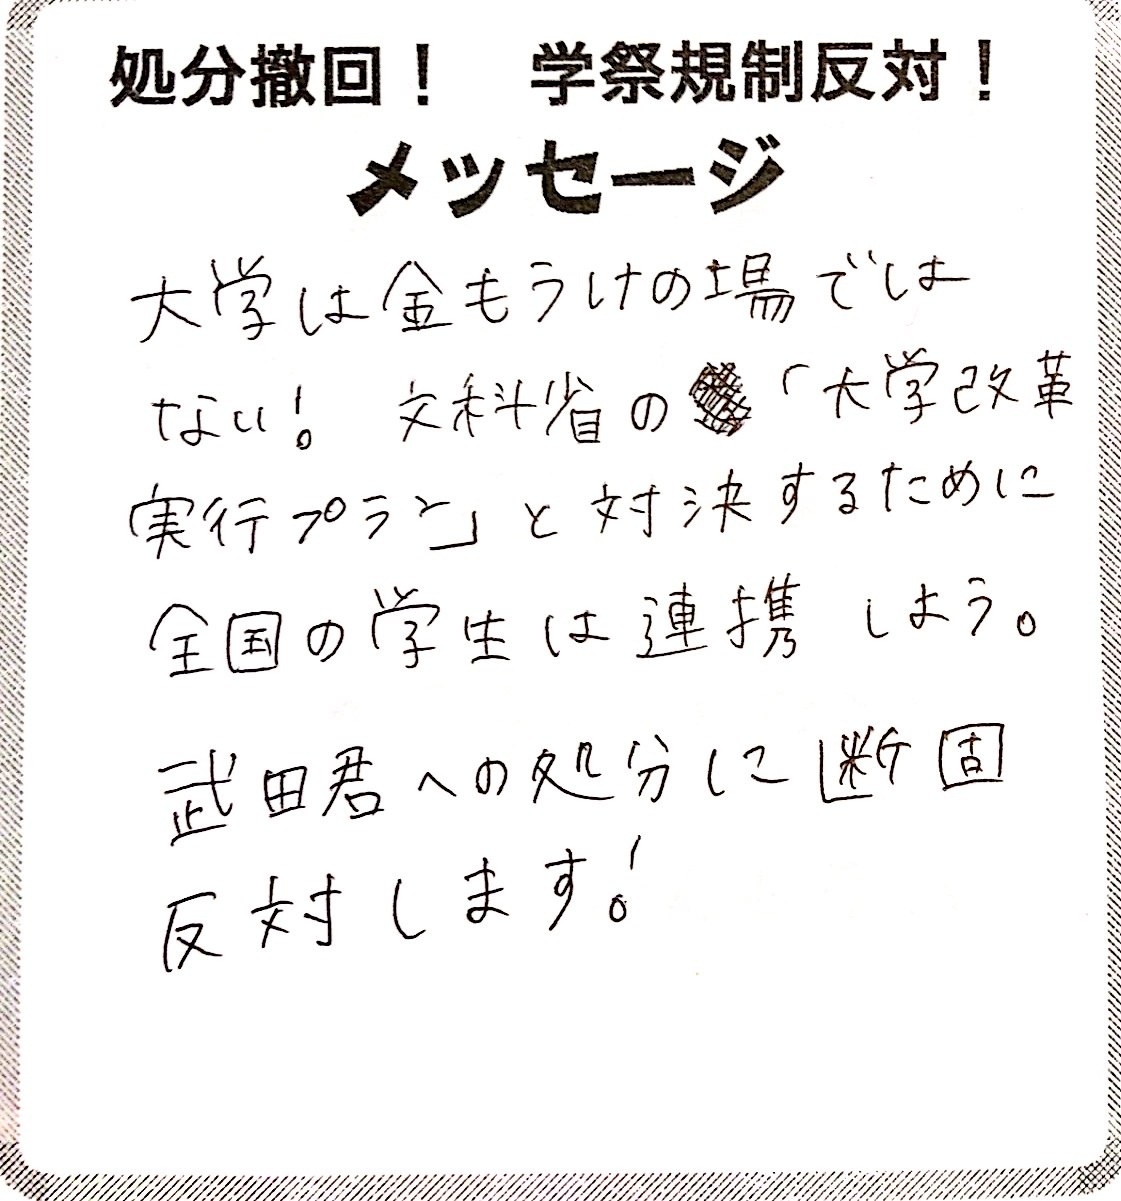 処分撤回！　学祭規制反対！
メッセージ
大学は金もうけの場では
ない！　文科省の「大学改革
実行プラン」と対決するために
全国の学生は連携しよう。
武田君への処分に断固
反対します！